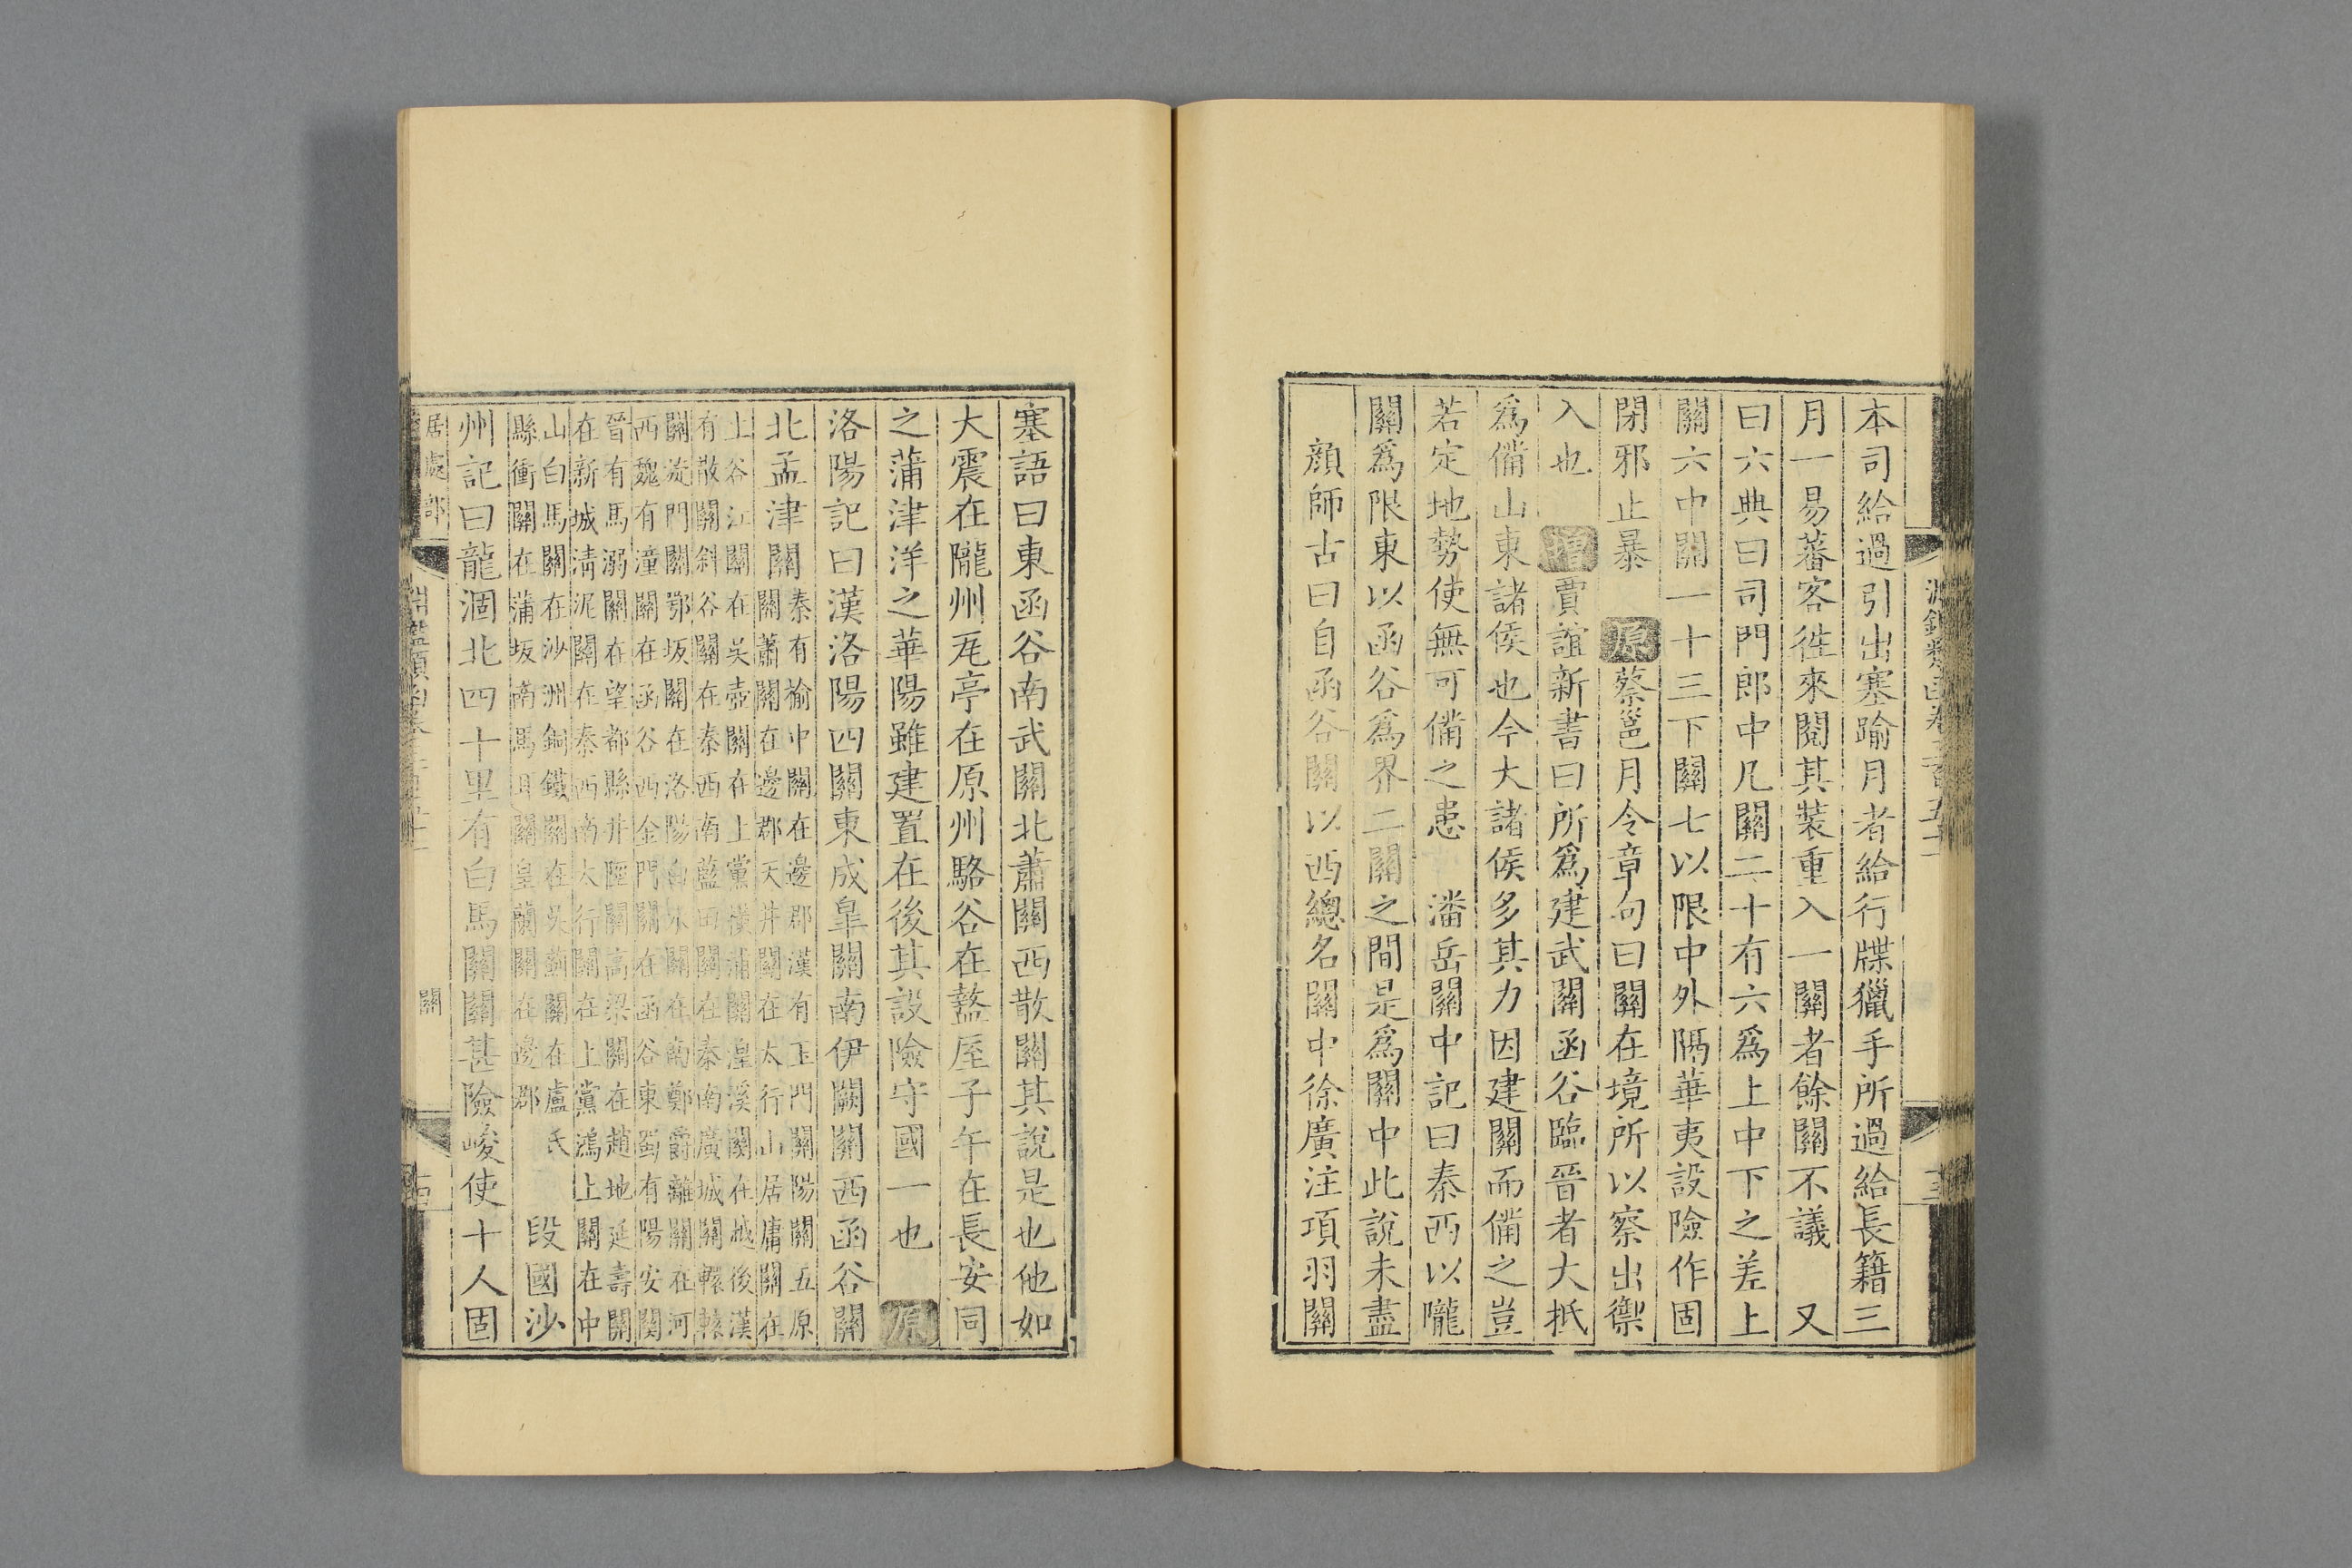 本司給過引出塞踰月者給行牒獵手所過給長籍三
月一易蕃客徃來閱其裝重入一關者餘關不譏　又
曰六典曰司門郎中凡關二十有六爲上中下之差上
關六中關一十三下關七以限中外隔華夷設險作固
閉邪止暴　原蔡邕月令章句曰關在境所以察出禦
入也　增賈誼新書曰所爲建武關函谷臨晉者大抵
爲備山東諸侯也今大諸侯多其力因建關而備之豈
若定地勢使無可備之患　潘岳關中記曰秦西以隴
關爲限東以函谷爲界二關之間是爲關中此說未盡
顔師古曰自函谷關以西總名關中徐廣注項羽關
塞語曰東函谷南武關北蕭關西散關其說是也他如
大震在隴州瓦亭在原州駱谷在盩厔子午在長安同
之蒲津洋之華陽雖建置在後其設險守國一也　原
洛陽記曰漢洛陽四關東成皐關南伊闕關西函谷關
北孟津關
秦有榆中關在邊郡漢有玉門關陽關五原
關蕭關在邊郡天井關在太行山居庸關在
上谷江關在吳壺關在上黨橫浦關湟溪關在越後漢
有散關斜谷關在秦西南藍田關在秦南廣城關轘轅
關旋門關鄂坂關在洛陽白水關在南鄭爵離關在河
西魏有潼關在函谷西金門關在函谷東蜀有陽安關
晉有馬溺關在望都縣井陘關高梁關在趙地延壽關
在新城淸泥關在秦西南太行關在上黨鴻上關在中
山白馬關在沙洲銅鐵關在吳薊關在盧氏
縣衝關在蒲坂南馬耳關皇蘭關在邊郡
段國沙
州記曰龍涸北四十里有白馬關關甚險峻使十人固
居處部
關